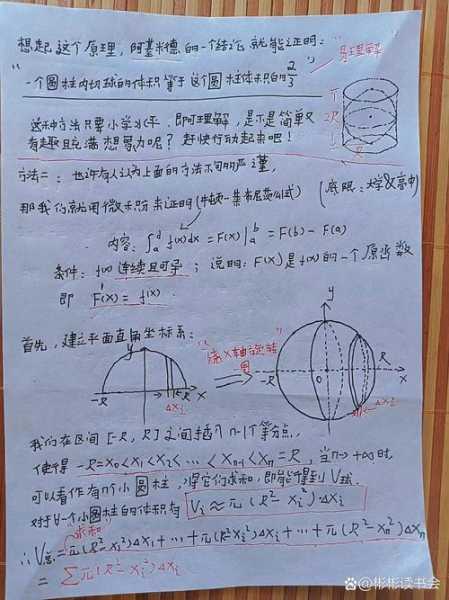 想起这个原理，阿基米德的一个结论就能证明：
"一个圆柱内切球的体积等于这个圆柱体积的2/3"
易理解
2R
R
这种方法只要小学水平，即可理解，是不是简单又
有趣且充满想象力呢？赶快行动起来吧！
方法二：也许有人认为上面的方法不够严谨，
那我们就用微积分来证明(牛顿-莱布尼茨公式)
(底限：大学&高中)
内容：∫_a^b f(x)dx = F(x)|_a^b = F(b) - F(a)
条件：f(x)连续且可导；说明：F(x)是f(x)的一个原函数
即 F'(x) = f(x).
首先，建立平面直角坐标系：
"绕X轴旋转一周"
y
-R
R
x
Δxi
y
-R
O
R
x
Δxi
我们在区间[-R, R]之间插n-1个等分点，
使得 -R=X0<X1<X2<…<Xn-1<Xn=R，当n→+∞时，
可以看作有n个小圆柱，将它们求和，即能得到V球.
对于每个小圆柱的体积有 Vi≈π(R²-xi²)Δxi
求和
∴V总=π(R²-X1²)ΔX1+…+π(R²-Xi²)ΔXi+…+π(R²-Xn²)ΔXn
= Σπ(R²-Xi²)ΔXi
@彬彬读书会